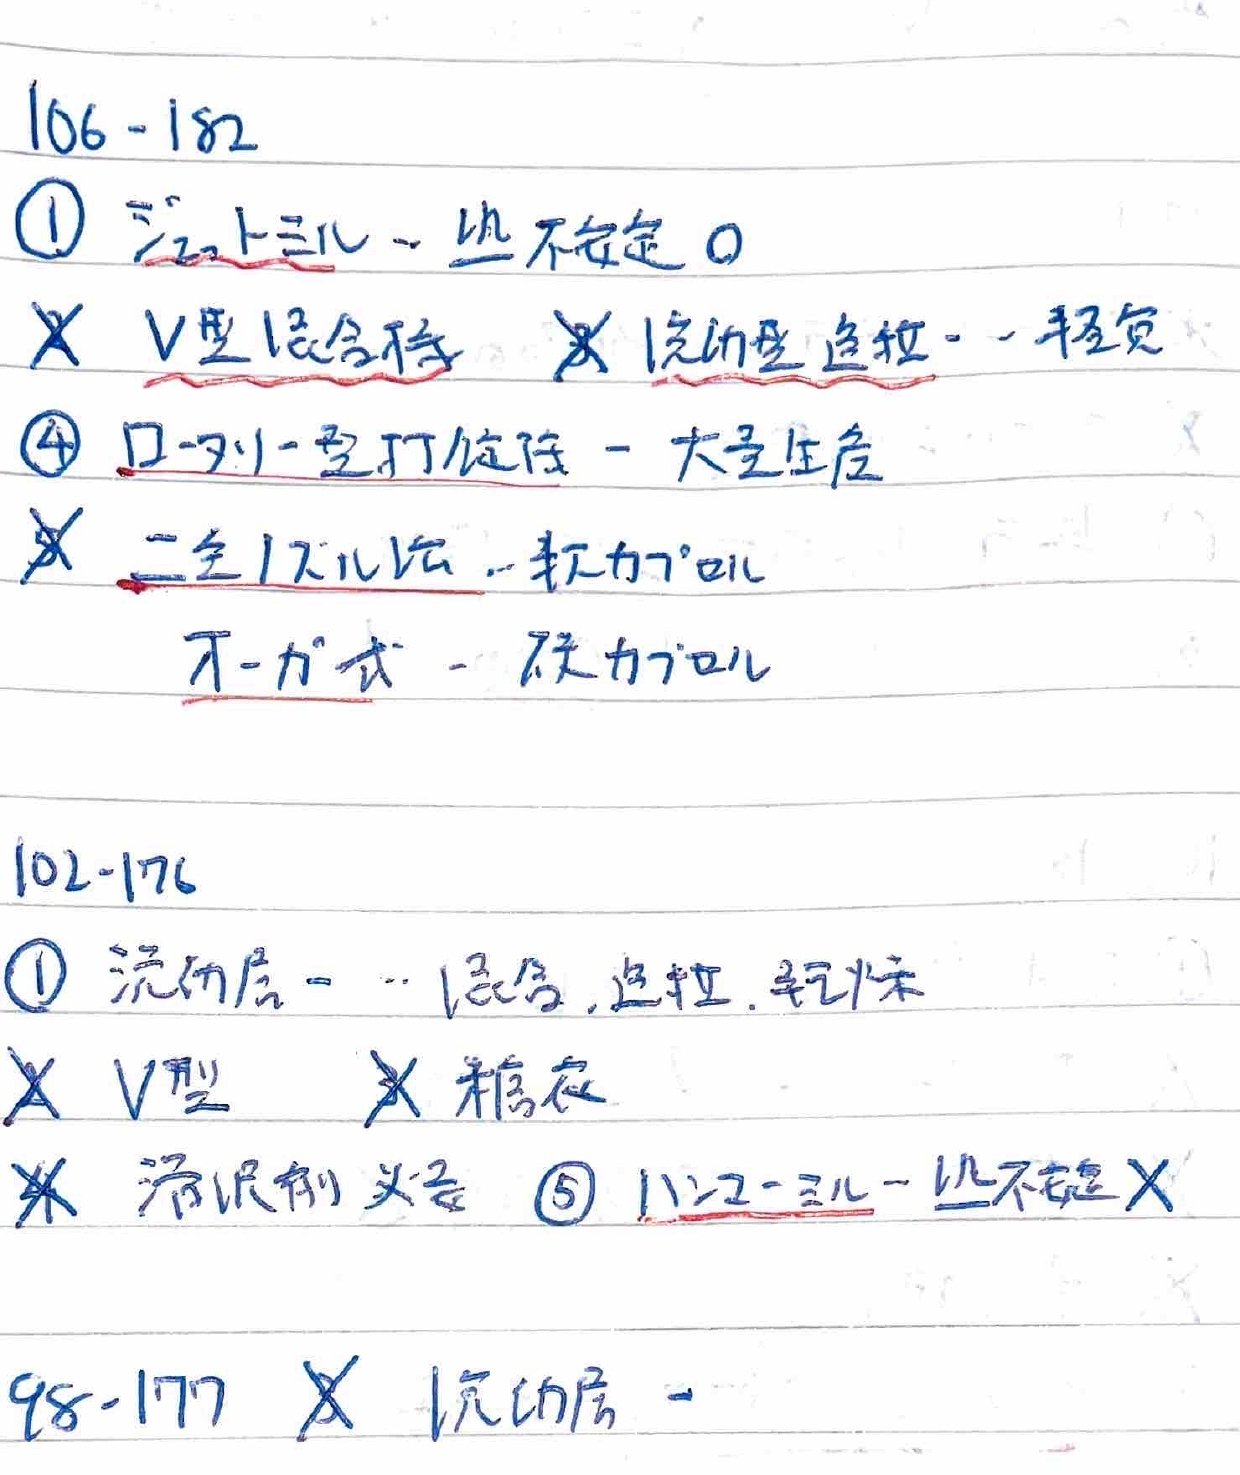 106-182
① ジェットミル - 熱不安定 〇
X V型混合機 X 流動型造粒 - - 軽質
④ ロータリー型打錠機 - 大量生産
X 二全ノズル法 - 軟カプセル
オーガ式 - 硬カプセル
102-176
① 流動層 - - 混合, 造粒, 乾燥
X V型 X 糖衣
X 滑沢剤 ⑤ ハンマーミル - 熱不安定 X
98-177 X 流動層 -